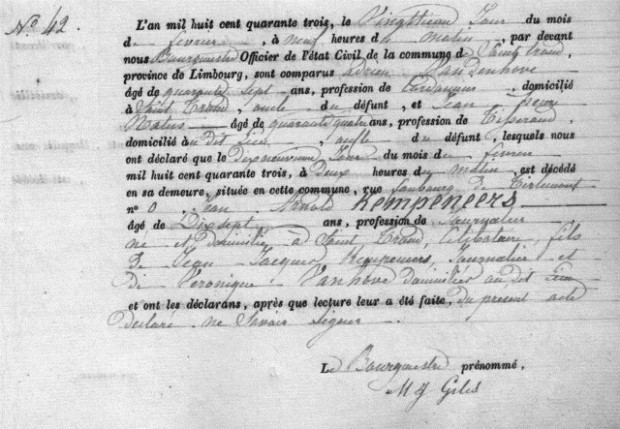 No 42.
L'an mil huit cent quarante trois, le Vingtième Jour du mois
de fevrier, à neuf heures du Matin, par devant
nous Bourgmestre Officier de l'état Civil de la commune de Saint trond,
province de Limbourg, sont comparus adrien Vandenhove
âgé de quarante Sept ans, profession de domicilié
à Saint Trond oncle du défunt, et Jean
âgé de quarante quatre ans, profession de Tisserand
domicilié au dit lieu, du défunt, lesquels nous
ont déclaré que le Dixneuvieme Jour du mois de fevrier
mil huit cent quarante trois, à Deux heures du Matin, est décédé
en sa demeure, située en cette commune, rue faubourg de Tirlemont
n° 0 Jean Arnold Kempeneers
âgé de Dix sept ans, profession de Journalier
né et Domicilié à Saint Trond, Célibataire, fils
De Jean Jacques Kempeneers, Journalier et
de Véronique Vanhove Domiciliés au dit lieu
et ont les déclarans, après que lecture leur a été faite, du present acte
declaré ne Savoir Signer.
Le Bourgmestre prénommé,
Giles